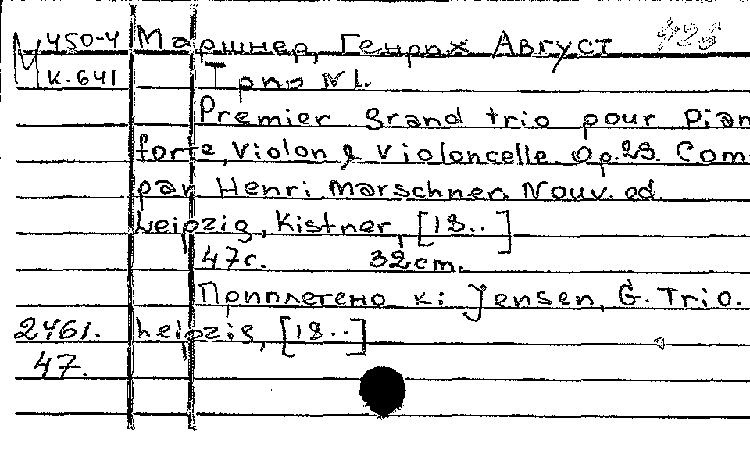 М 450-4 Маршнер, Генрих Август
К-641 Трио N1.
Premier grand trio pour Pian
forte, Violon & Violoncelle. Op. 29. Com
par Henri Marschner. Nouv. ed.
Leipzig, Kistner, [18..]
47с. 32cm.
Приплетено к: Jensen, G. Trio.
2461. Leipzig, [18..]
47.